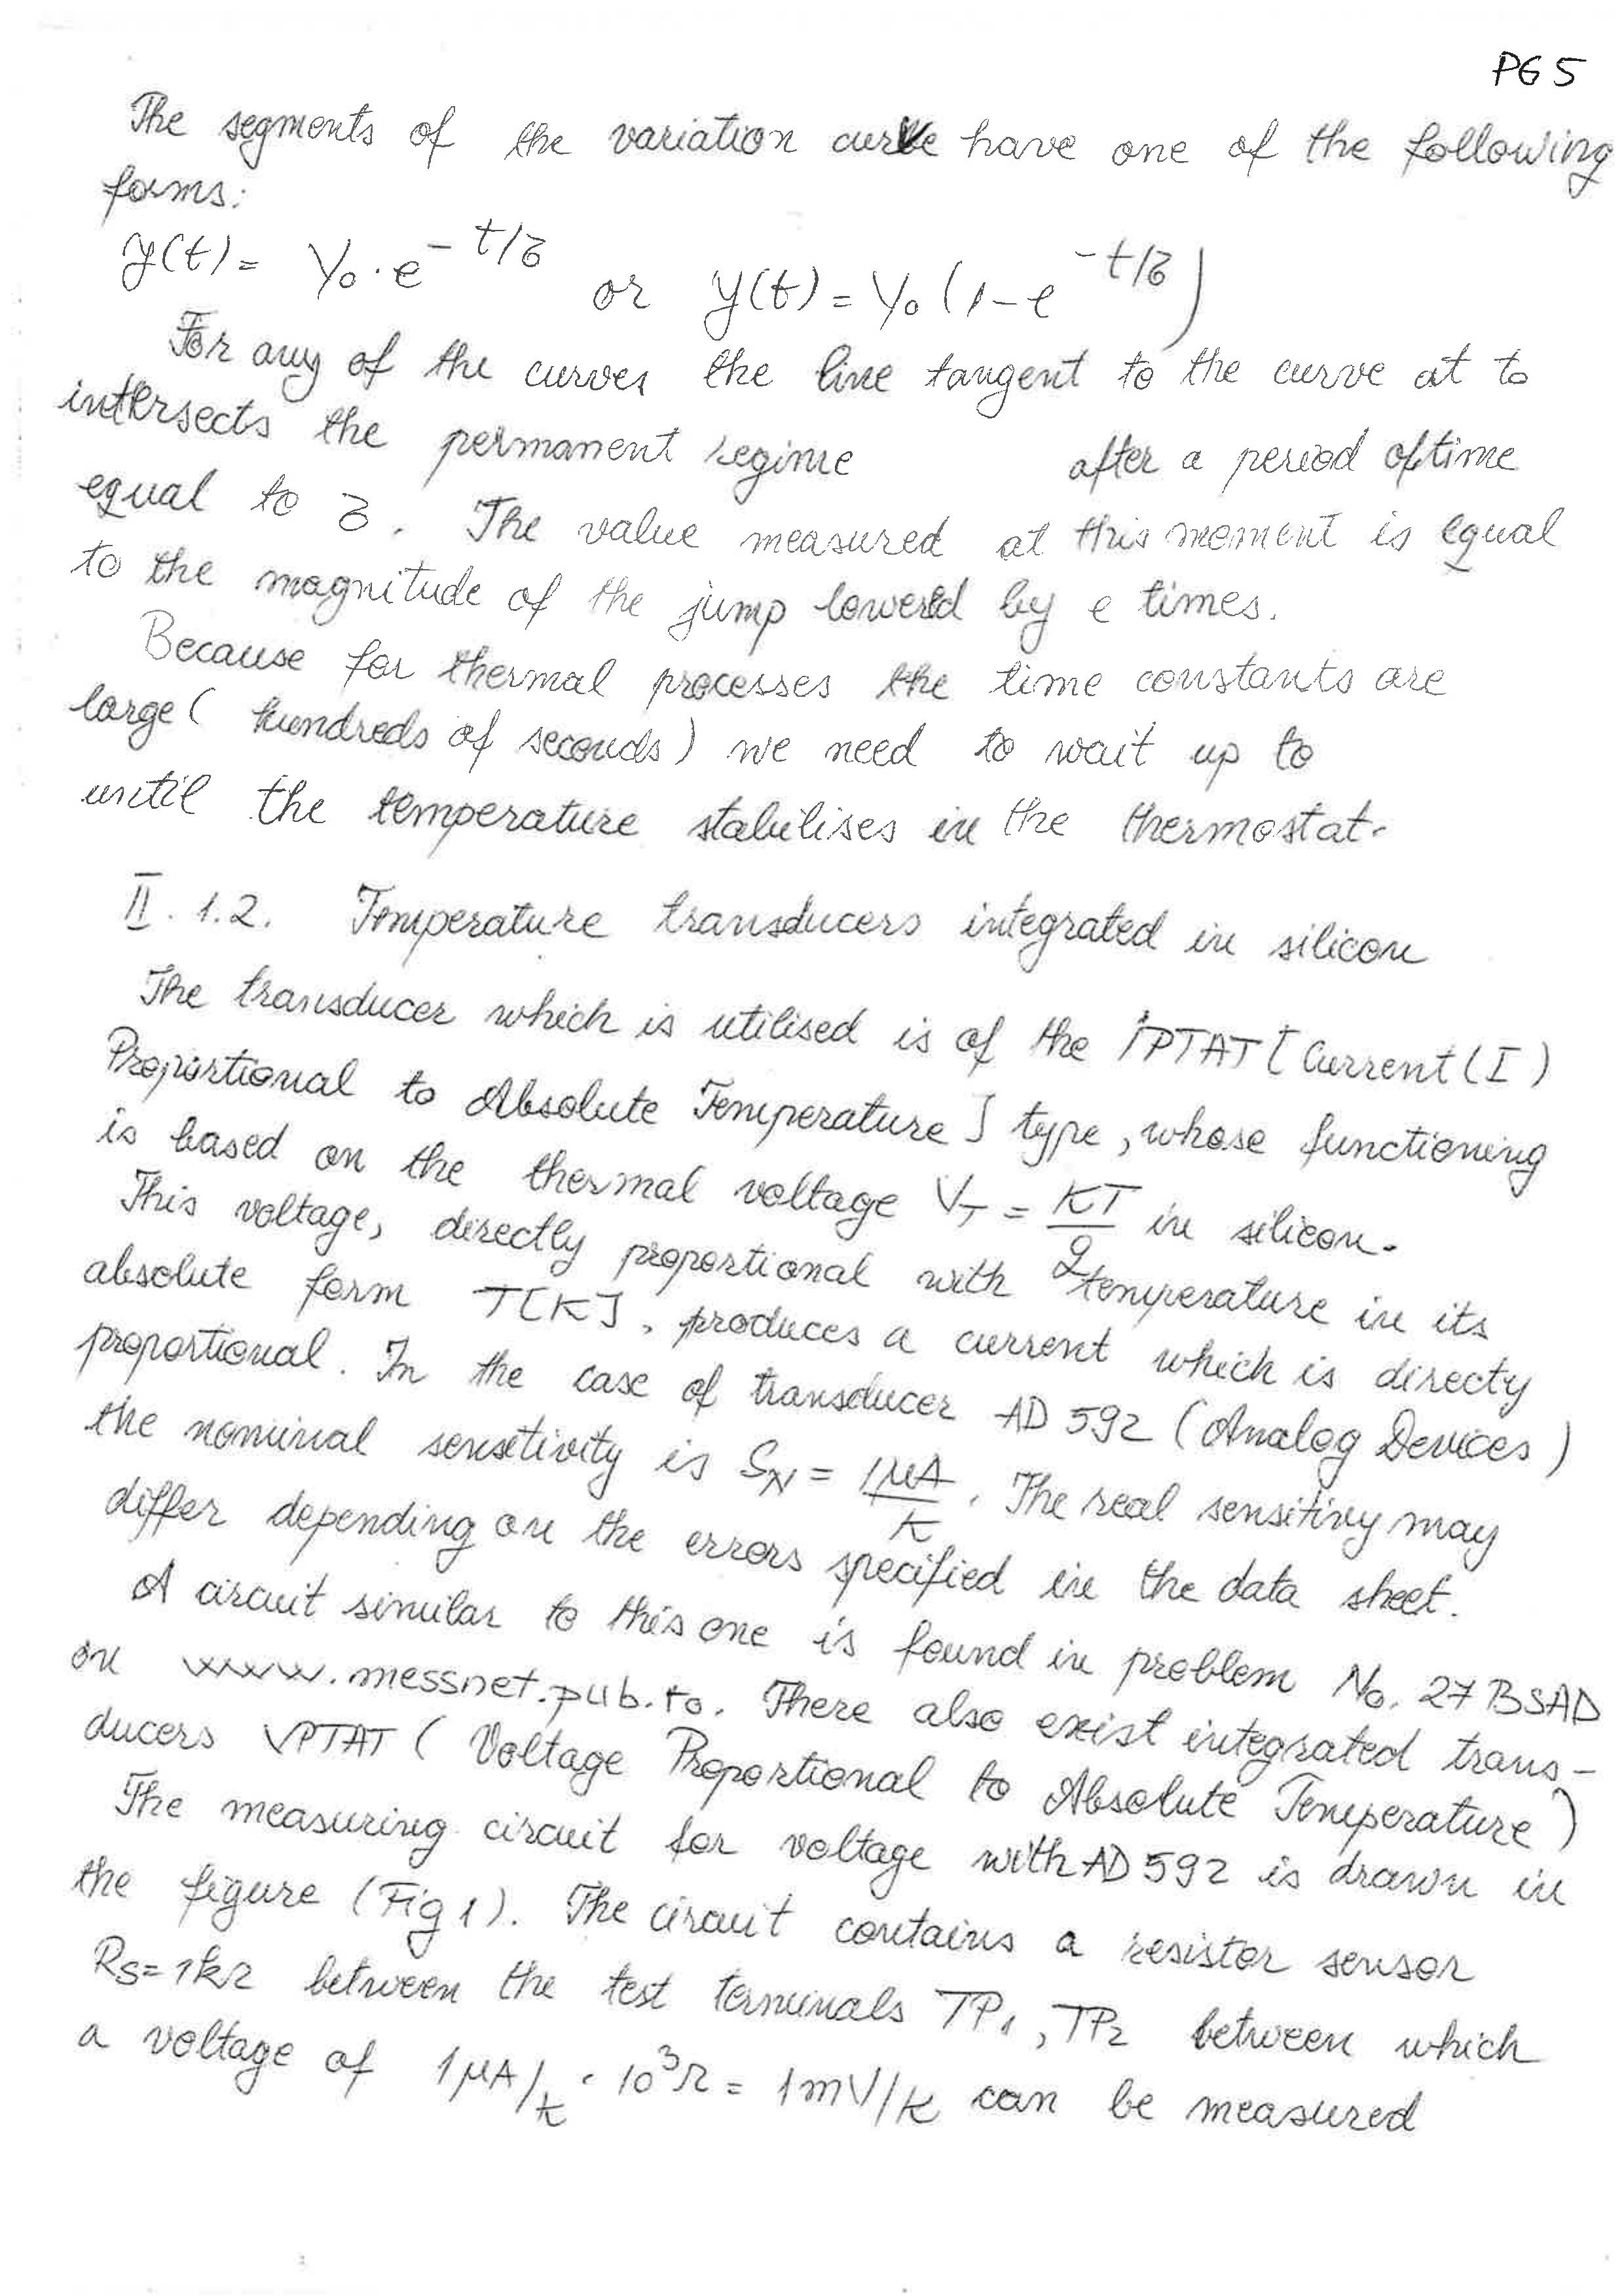 PG 5
The segments of the variation curve have one of the following
forms:
y(t) = Y₀ · e^{-t/τ} or y(t) = Y₀ (1-e^{-t/τ})
For any of the curves the line tangent to the curve at to
intersects the permanent regime after a period of time
equal to τ. The value measured at this moment is equal
to the magnitude of the jump lowered by e times.
Because for thermal processes the time constants are
large ( hundreds of seconds) we need to wait up to
until the temperature stabilises in the thermostat.
II. 1.2. Temperature transducers integrated in silicon
The transducer which is utilised is of the iPTAT [Current (I)
Proportional to Absolute Temperature] type, whose functioning
is based on the thermal voltage V_T = KT/q in silicon.
This voltage, directly proportional with temperature in its
absolute form T[K], produces a current which is directy
proportional. In the case of transducer AD 592 (Analog Devices)
the nominal sensitivity is S_N = 1μA/K. The real sensitivy may
differ depending on the errors specified in the data sheet.
A circuit similar to this one is found in problem No. 27 BSAD
on www.messnet.pub.ro. There also exist integrated trans-
ducers VPTAT ( Voltage Proportional to Absolute Temperature)
The measuring circuit for voltage with AD 592 is drawn in
the figure (Fig 1). The circuit contains a resistor sensor
R_S = 1kΩ between the test terminals TP₁, TP₂ between which
a voltage of 1μA/K · 10³Ω = 1mV/K can be measured